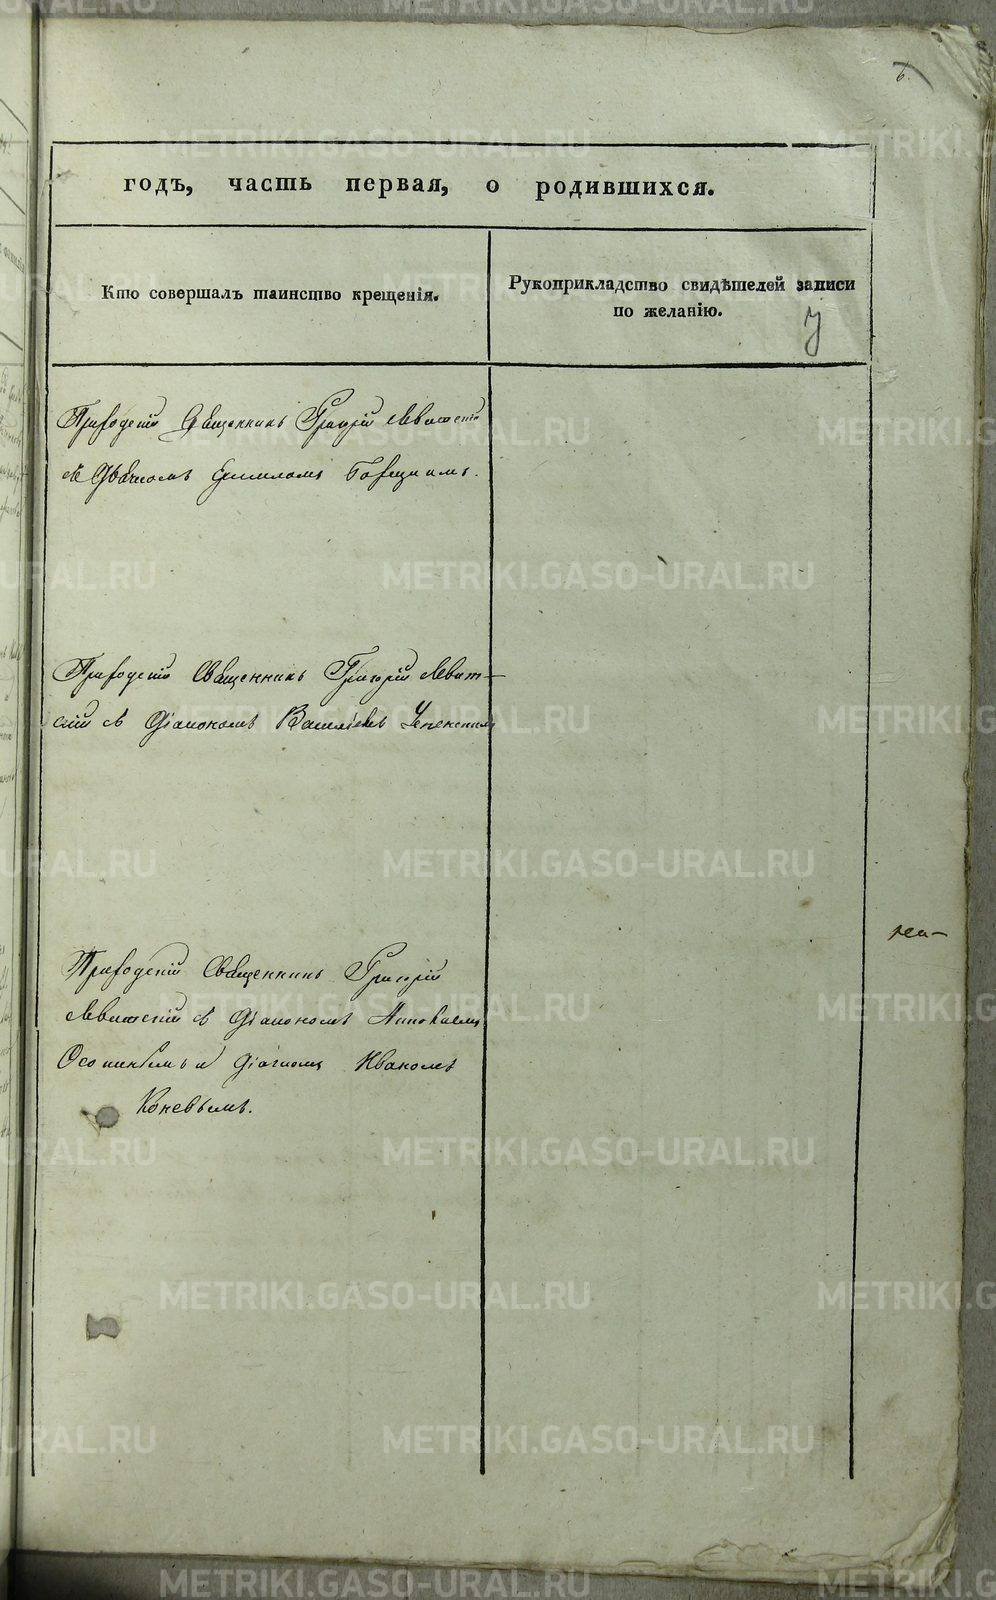 6.
годъ, часть первая, о родившихся.
Кто совершалъ таинство крещенія.
Рукоприкладство свидѣтелей записи
по желанію.
Приходскій Священникъ Григорій Левитскій
съ Дьячкомъ
Приходскій Священникъ Григорій Левит-
скій съ Діакономъ Василіемъ Успенскимъ
Приходскій Священникъ Григорій
Левитскій съ Діакономъ
и Дьячкомъ Иваномъ
Коневымъ.
METRIKI.GASO-URAL.RU